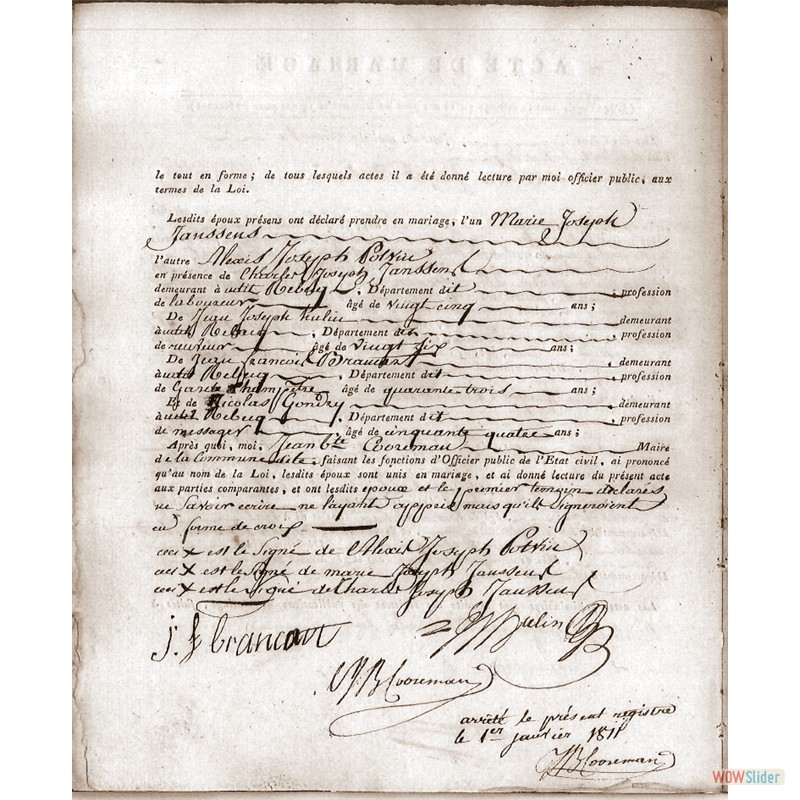 le tout en forme ; de tous lesquels actes il a été donné lecture par moi officier public, aux
termes de la Loi.
Lesdits époux présens ont déclaré prendre en mariage, l'un Marie Joseph
Janssens
l'autre Alexis Joseph Potvin
en présence de Charles Joseph Janssens
demeurant à udit Rebecq, Département dit profession
de laboureur âgé de vingt cinq ans ;
De Jean Joseph hulin demeurant
à udit Rebecq, Département dit profession
de âgé de vingt six ans ;
De Jean francois Brancart demeurant
à udit Rebecq, Département dit profession
de Garde Champetre âgé de quarante trois ans ;
Et de Nicolas Gondry demeurant
à udit Rebecq, Département dit profession
de messager âgé de cinquante quatre ans ;
Après quoi, moi, Jean Bte Cooreman Maire
de la Commune dite, faisant les fonctions d'Officier public de l'Etat civil, ai prononcé
qu'au nom de la Loi, lesdits époux sont unis en mariage, et ai donné lecture du présent acte
aux parties comparantes, et ont lesdits epoux et le premier temoin declarés
ne savoir ecrire ne l'ayant appris mais qu'ils signeroient
en forme de croix
ceci X est le signé de Alexis Joseph Potvin
ceci X est le signé de marie Joseph Janssens
ceci X est le signé de Charles Joseph Janssens
j. f brancart
hulin
JB Cooreman
arrêté le présent registre
le 1er janvier 1811
JB Cooreman
WOWSlider